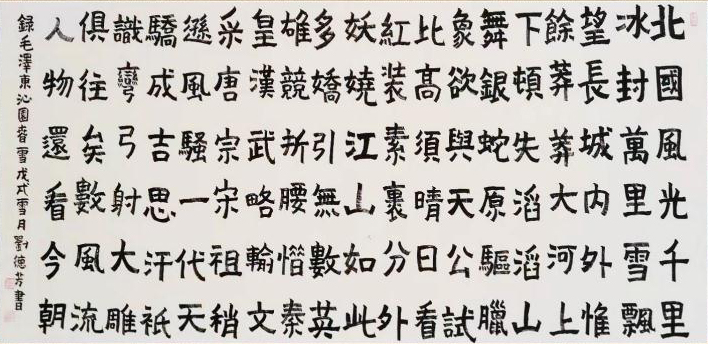 北國風光千里
冰封萬里雪飄
望長城內外惟
餘莽莽大河上
下頓失滔滔山
舞銀蛇原驅臘
象欲與天公試
比高須晴日看
紅裝素裹分外
妖嬈江山如此
多嬌引無數英
雄競折腰惜秦
皇漢武略輸文
采唐宗宋祖稍
遜風騷一代天
驕成吉思汗衹
識彎弓射大雕
俱往矣數風流
人物還看今朝
錄毛澤東沁園春雪戊戌雪月劉德芳書